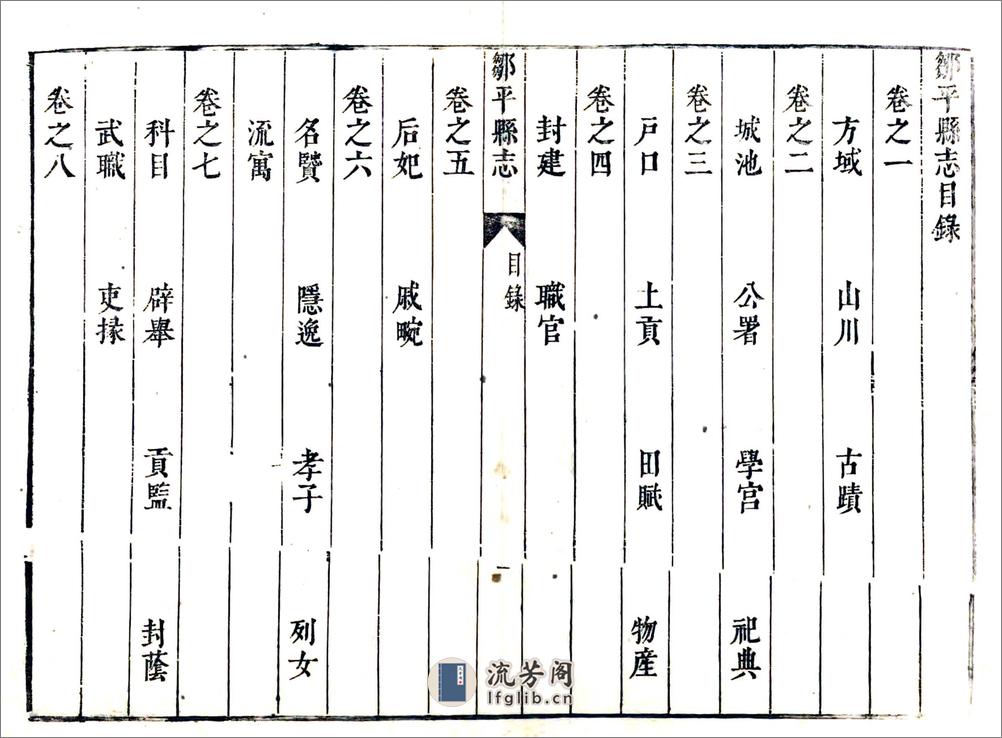 鄒平縣志目錄
卷之一
方域 山川 古蹟
卷之二
城池 公署 學宮 祀典
卷之三
戸口 土貢 田賦 物産
卷之四
封建 職官
鄒平縣志 目錄 一
卷之五
后妃 戚畹
卷之六
名賢 隱逸 孝子 列女
流寓
卷之七
科目 辟舉 貢監 封蔭
武職 吏掾
卷之八
流芳阁
lfglib.cn